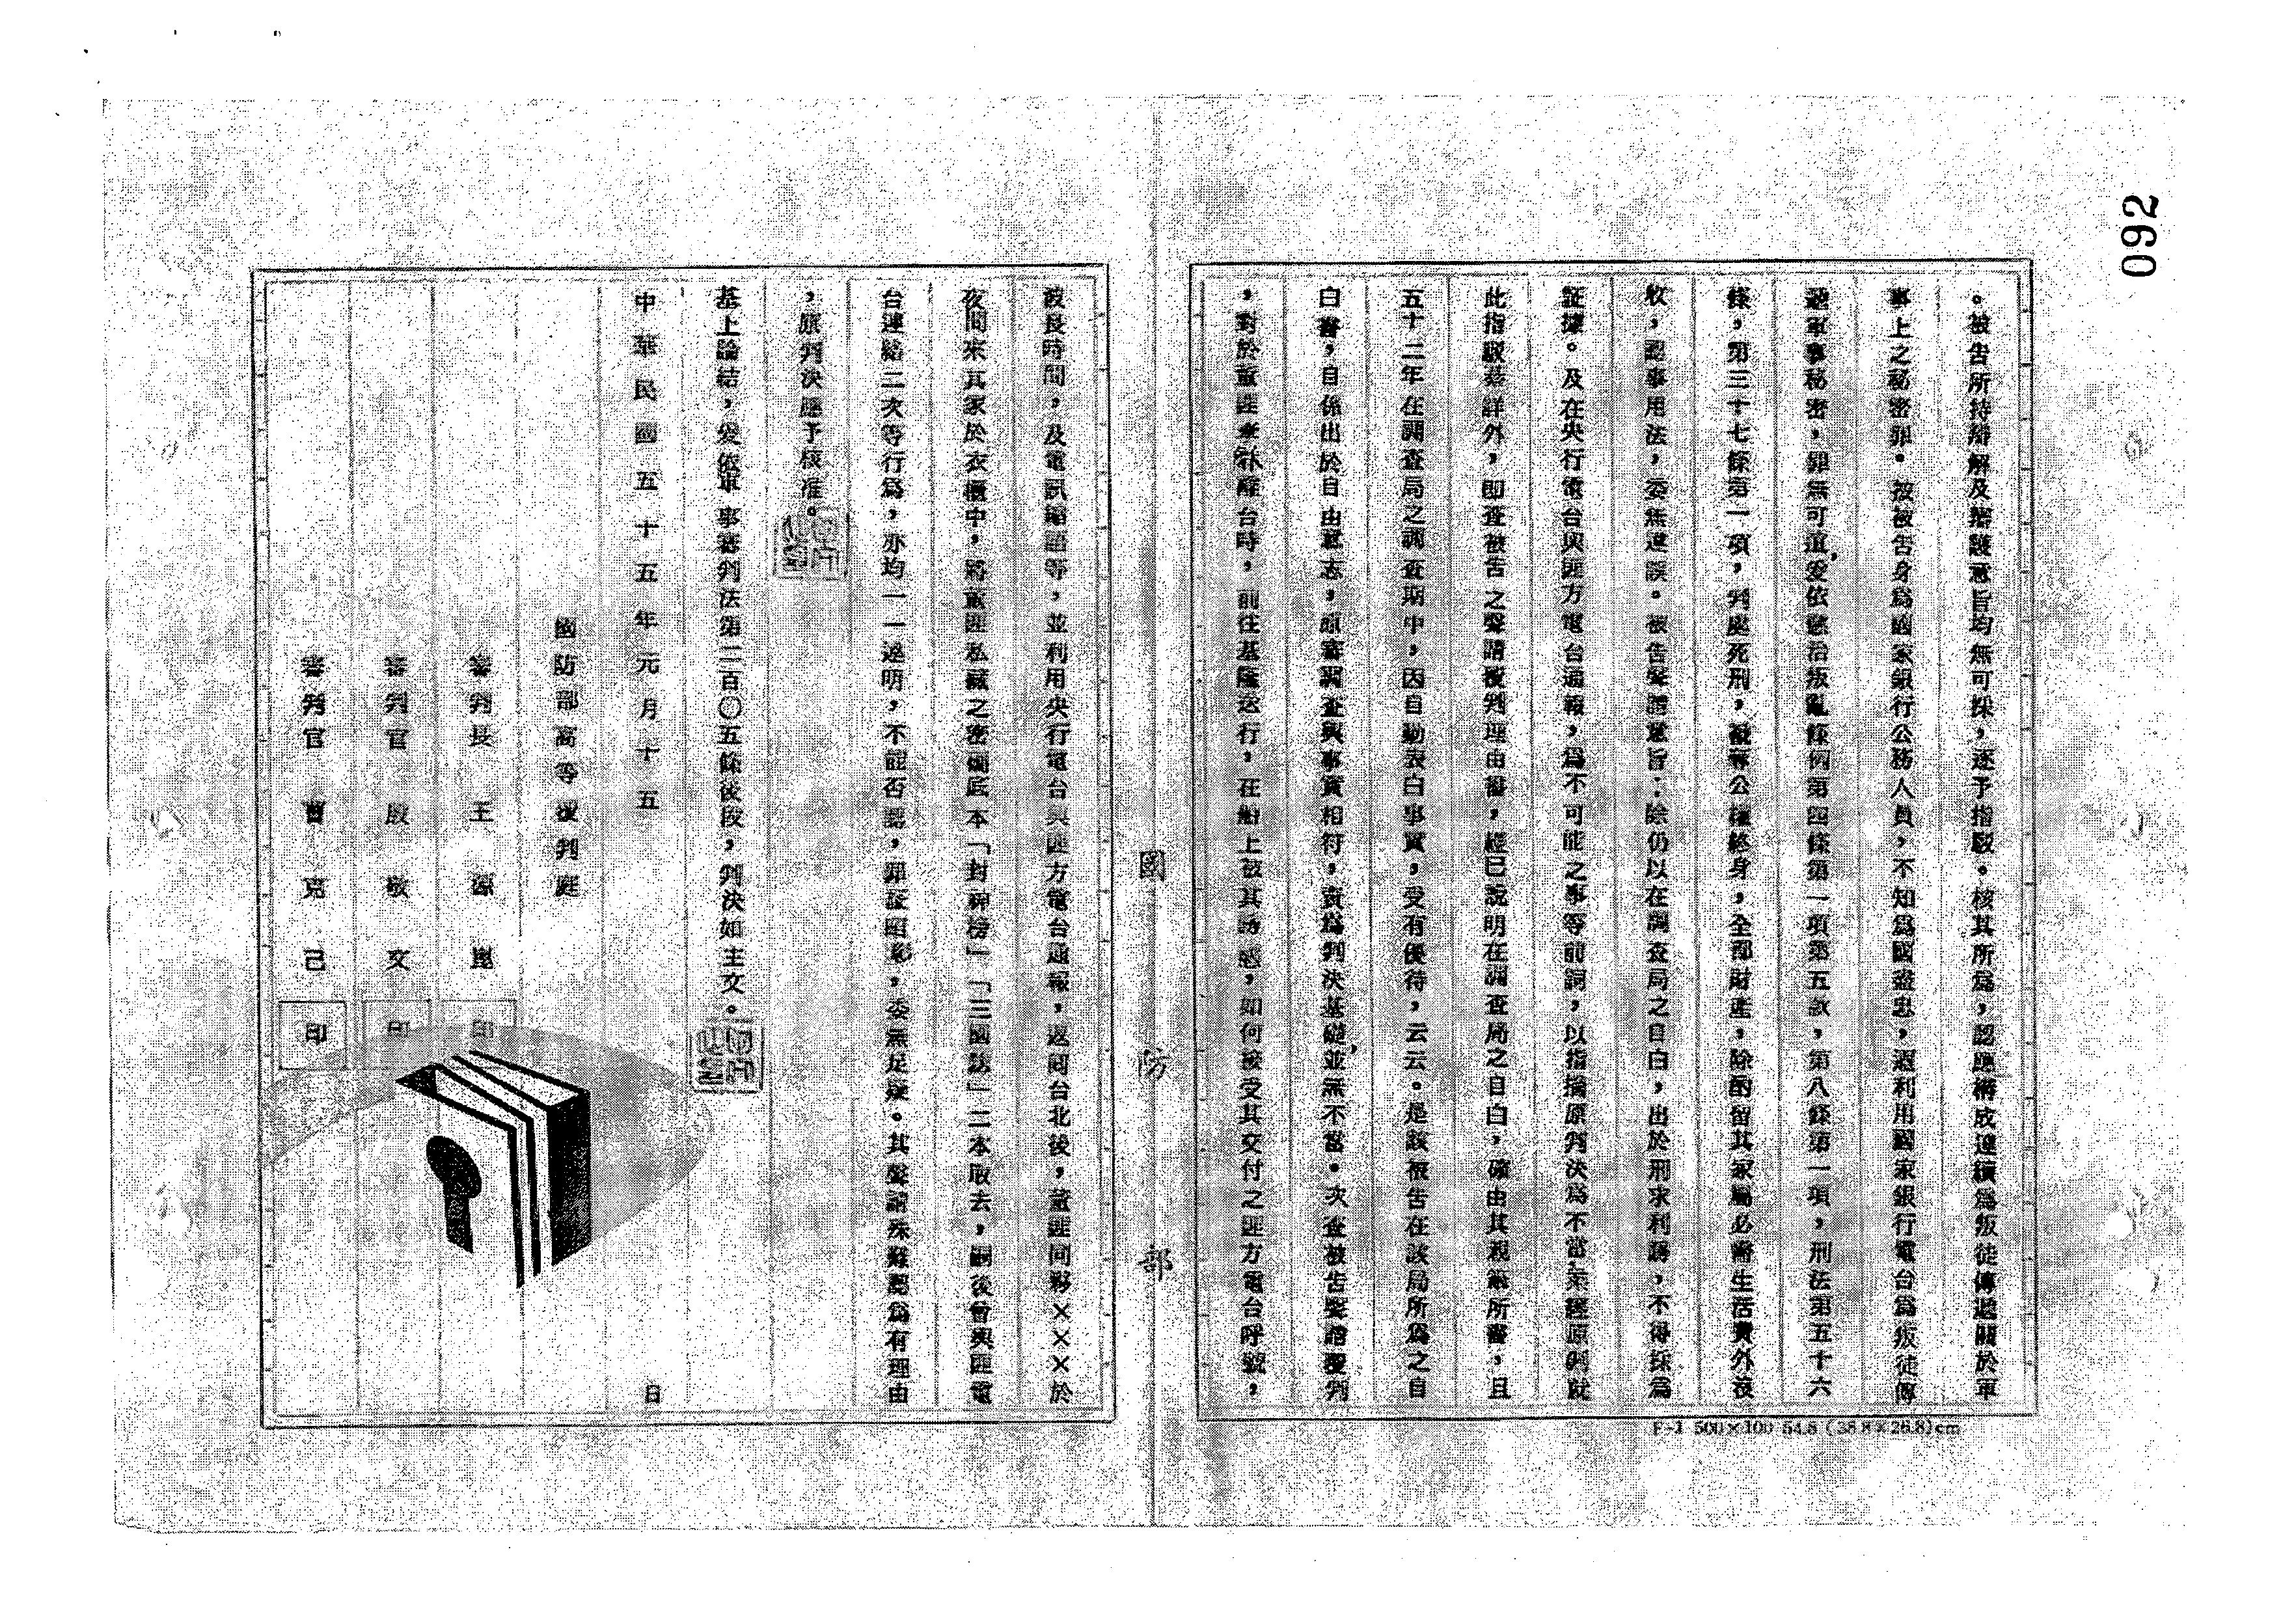 092
。被告所持辯解及辯護意旨均無可採，逐予指駁。核其所為，認應構成連續為叛徒傳遞關於軍
事上之秘密罪。被告身為國家銀行公務人員，不知為國盡忠，利用國家銀行電台為叛徒傳
遞軍事秘密，罪無可逭，爰依懲治叛亂條例第四條第一項第五款，第八條第一項，刑法第五十六
條，第三十七條第一項，判處死刑，褫奪公權終身，全部財產，除酌留其家屬必需生活費外沒
收，認事用法，委無違誤。被告聲請意旨：除仍以在調查局之自白，出於刑求利誘，不得採為
証據。及在央行電台與匪方電台通報，為不可能之事等前詞，以指摘原判決為不當，業經原判就
此指駁綦詳外，即查被告之聲請覆判理由書，經已說明在調查局之自白，確由其親筆所書，且
五十二年在調查局之調查期中，因自動表白事實，受有優待，云云。是該被告在該局所為之自
白書，自係出於自由意志，原審調查與事實相符，資為判決基礎，並無不當。次查被告聲請覆判
，對於董匪離台時，前往基隆送行，在船上被其誘惑，如何接受其交付之匪方電台呼號，
國防部
波長時間，及電訊縮語等，並利用央行電台與匪方電台通報，返回台北後，董匪同夥×××於
夜間來其家於衣櫃中，將董匪私藏之密碼底本「封神榜」「三國誌」二本取去，嗣後曾與匪電
台連絡二次等行為，亦均一一遙明，不能否認，罪証昭彰，委無足疑。其聲請殊難認為有理由
，原判決應予核准。
基上論結，爰依軍事審判法第二百〇五條後段，判決如主文。
中華民國五十五年元月十五日
國防部高等覆判庭
審判長 王源崑 印
審判官 殷敬文 印
審判官 曹克己 印
F-1 500×100 54.8 (38.8×26.8)cm